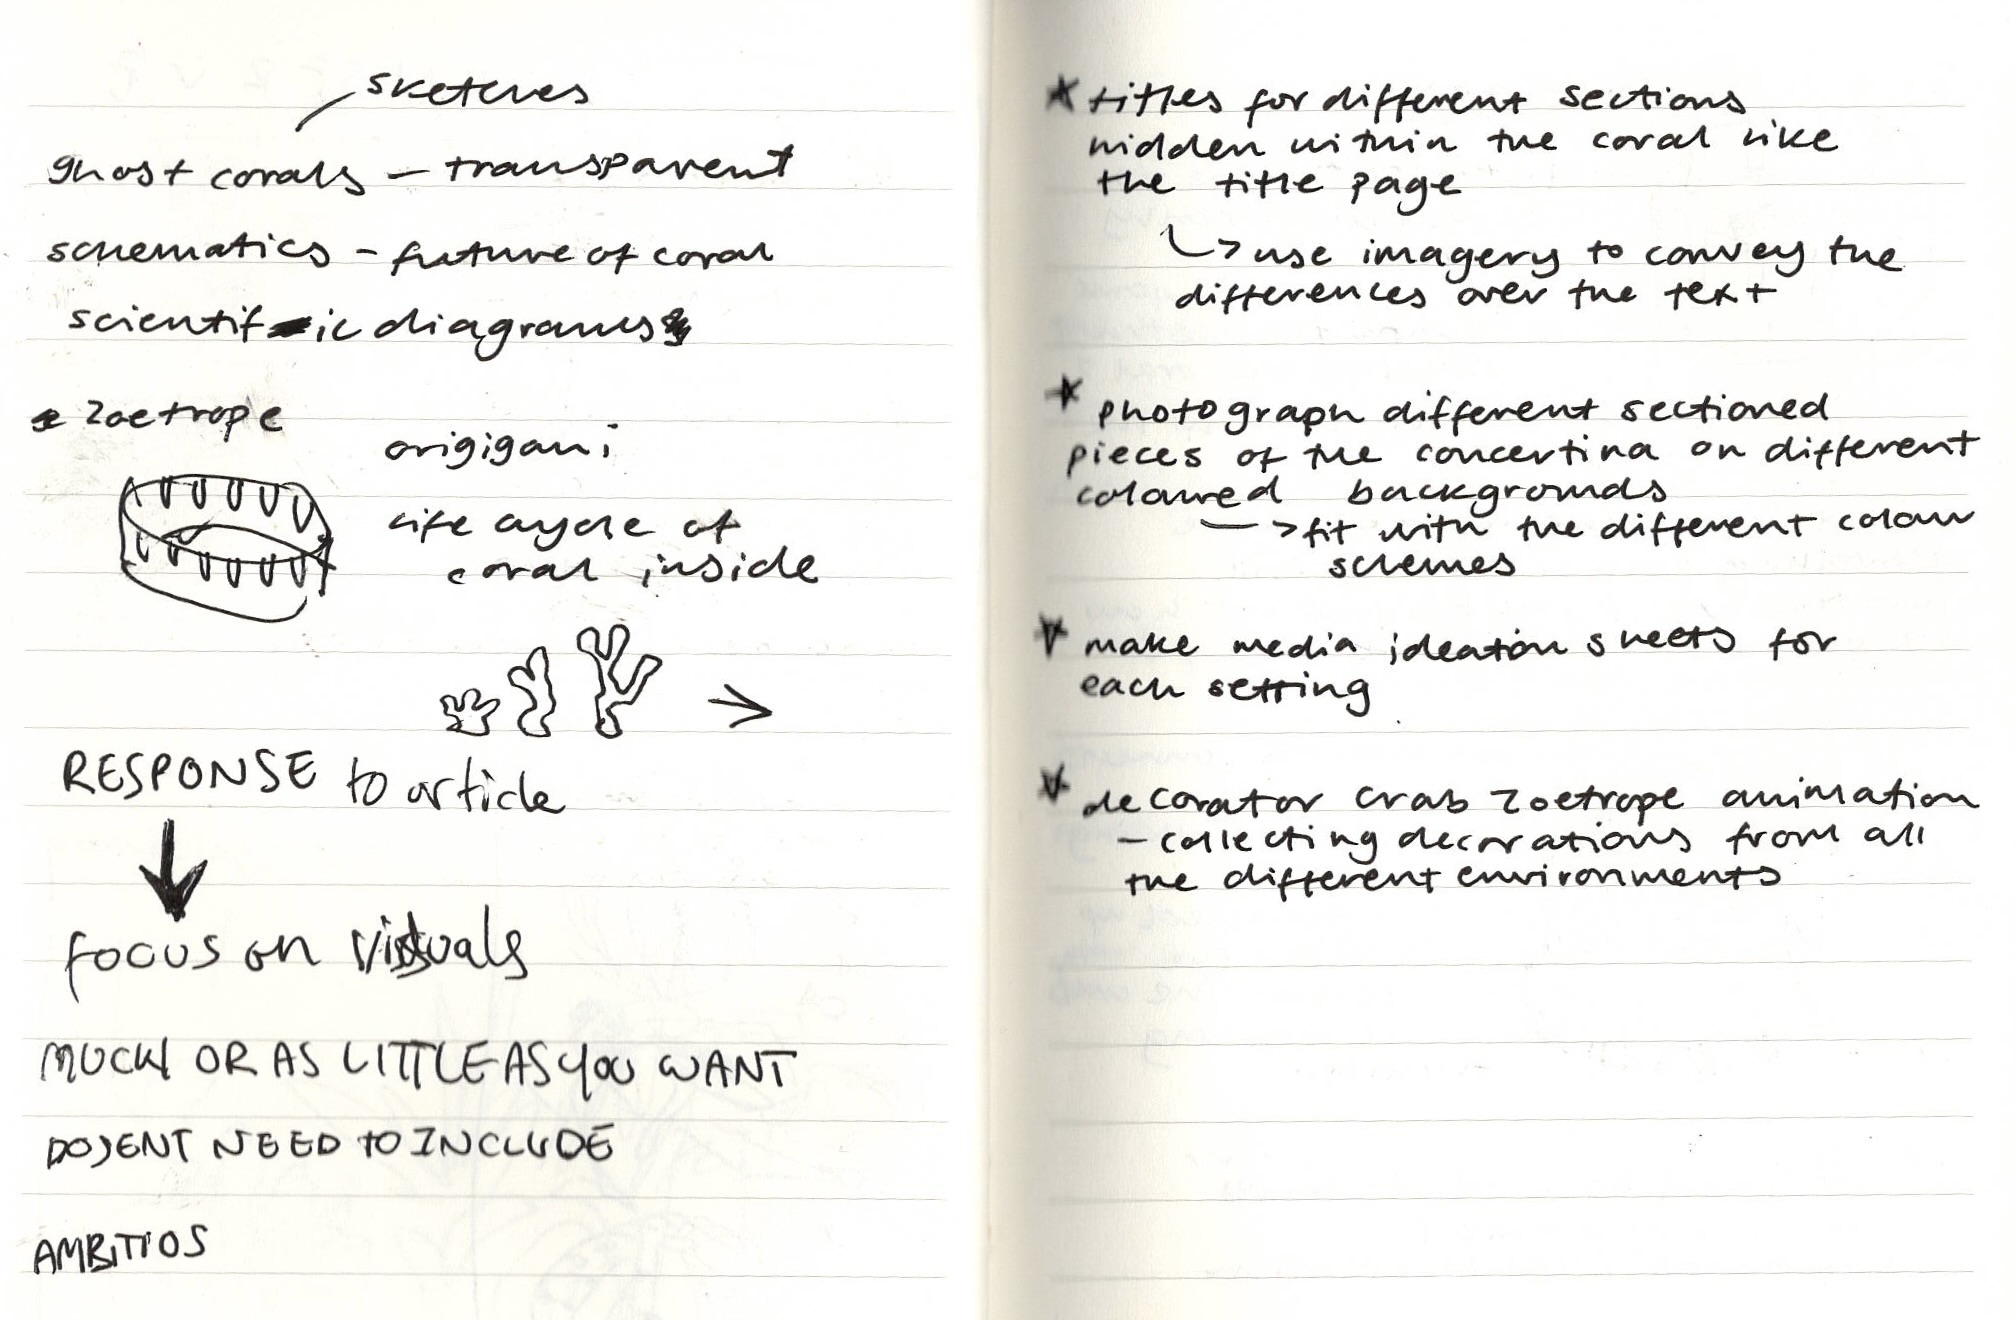 sketches
ghost corals - transparent
schematics - future of coral
scientific diagrams
Zoetrope
origigami
life cycle of
coral inside
RESPONSE to article
focus on visuals
MUCH OR AS LITTLE AS YOU WANT
DOSENT NEED TO INCLUDE
AMBITIOS
* titles for different sections
hidden within the coral like
the title page
↳> use imagery to convey the
differences over the text
* photograph different sectioned
pieces of the concertina on different
coloured backgrounds
—> fit with the different colour
schemes
* make media ideation sheets for
each setting
* decorator crab zoetrope animation
- collecting decorations from all
the different environments